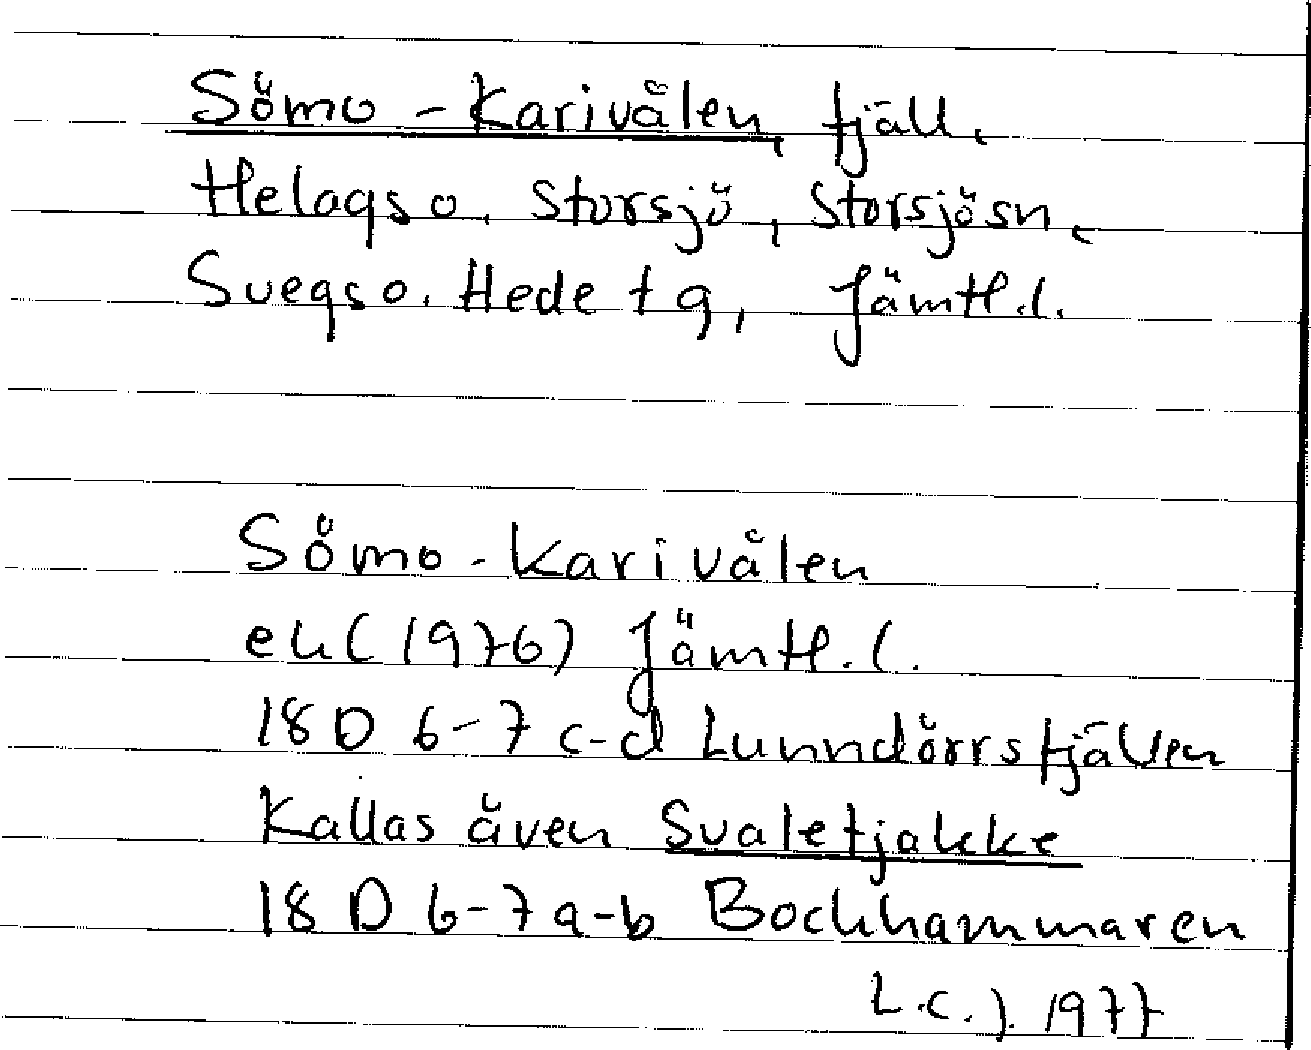 Sömo-Karivålen, fjäll,
Helags o, Storsjö, Storsjösn,
Svegs o. Hede tg, Jämtl.l.
Sömo-Karivålen
ek (1976) Jämtl.l.
18D 6-7 c-d Lunndörrsfjällen
Kallas även Svaletjakke
18 D 6-7 a-b Bockhammaren
L.C.J. 1977